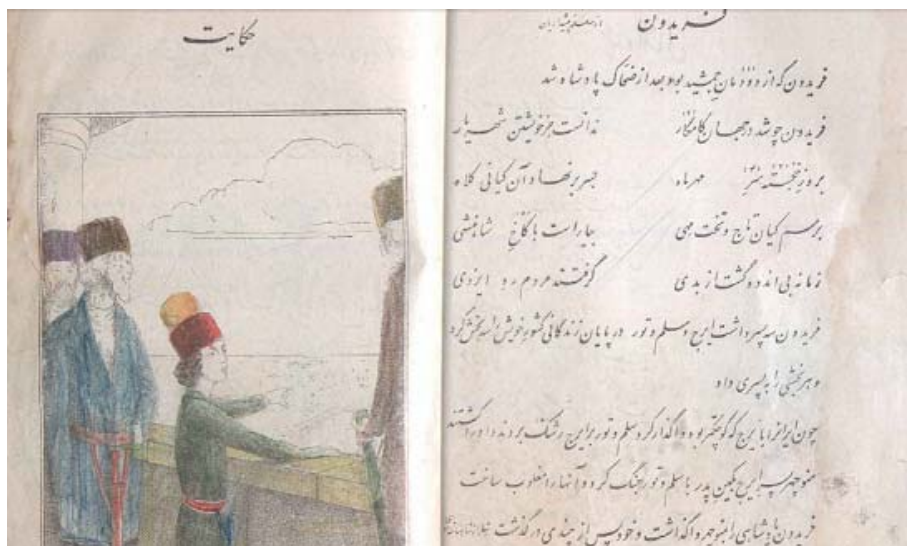 فریدون
از سلسلهٔ پیشدادیان
فریدون که از دودمان جمشید بود بعد از ضحاک پادشاه شد
فریدون چو شد در جهان کامکار ندانست جز خویشتن شهریار
بروز خجسته سر مهر ماه بسر بر نهاد آن کیانی کلاه
برسم کیان تاج و تخت مهی بیاراست با کاخ شاهنشهی
زمانه بی اندوه گشت از بدی گرفتند مردم ره ایزدی
فریدون سه پسر داشت ایرج و سلم و تور در پایان زندگانی کشور خویش را سه بخش کرد
و هر بخشی را به پسری داد
چون ایران را با یرج که کوچکتر بود واگذار کرد سلم و تور بر ایرج رشک بردند و او را کشتند
منوچهر پسر ایرج بکین پدر با سلم و تور جنگ کرد و آنها را مغلوب ساخت
فریدون پادشاهی را بمنوچهر واگذاشت و خود پس از چندی در گذشت
حکایت